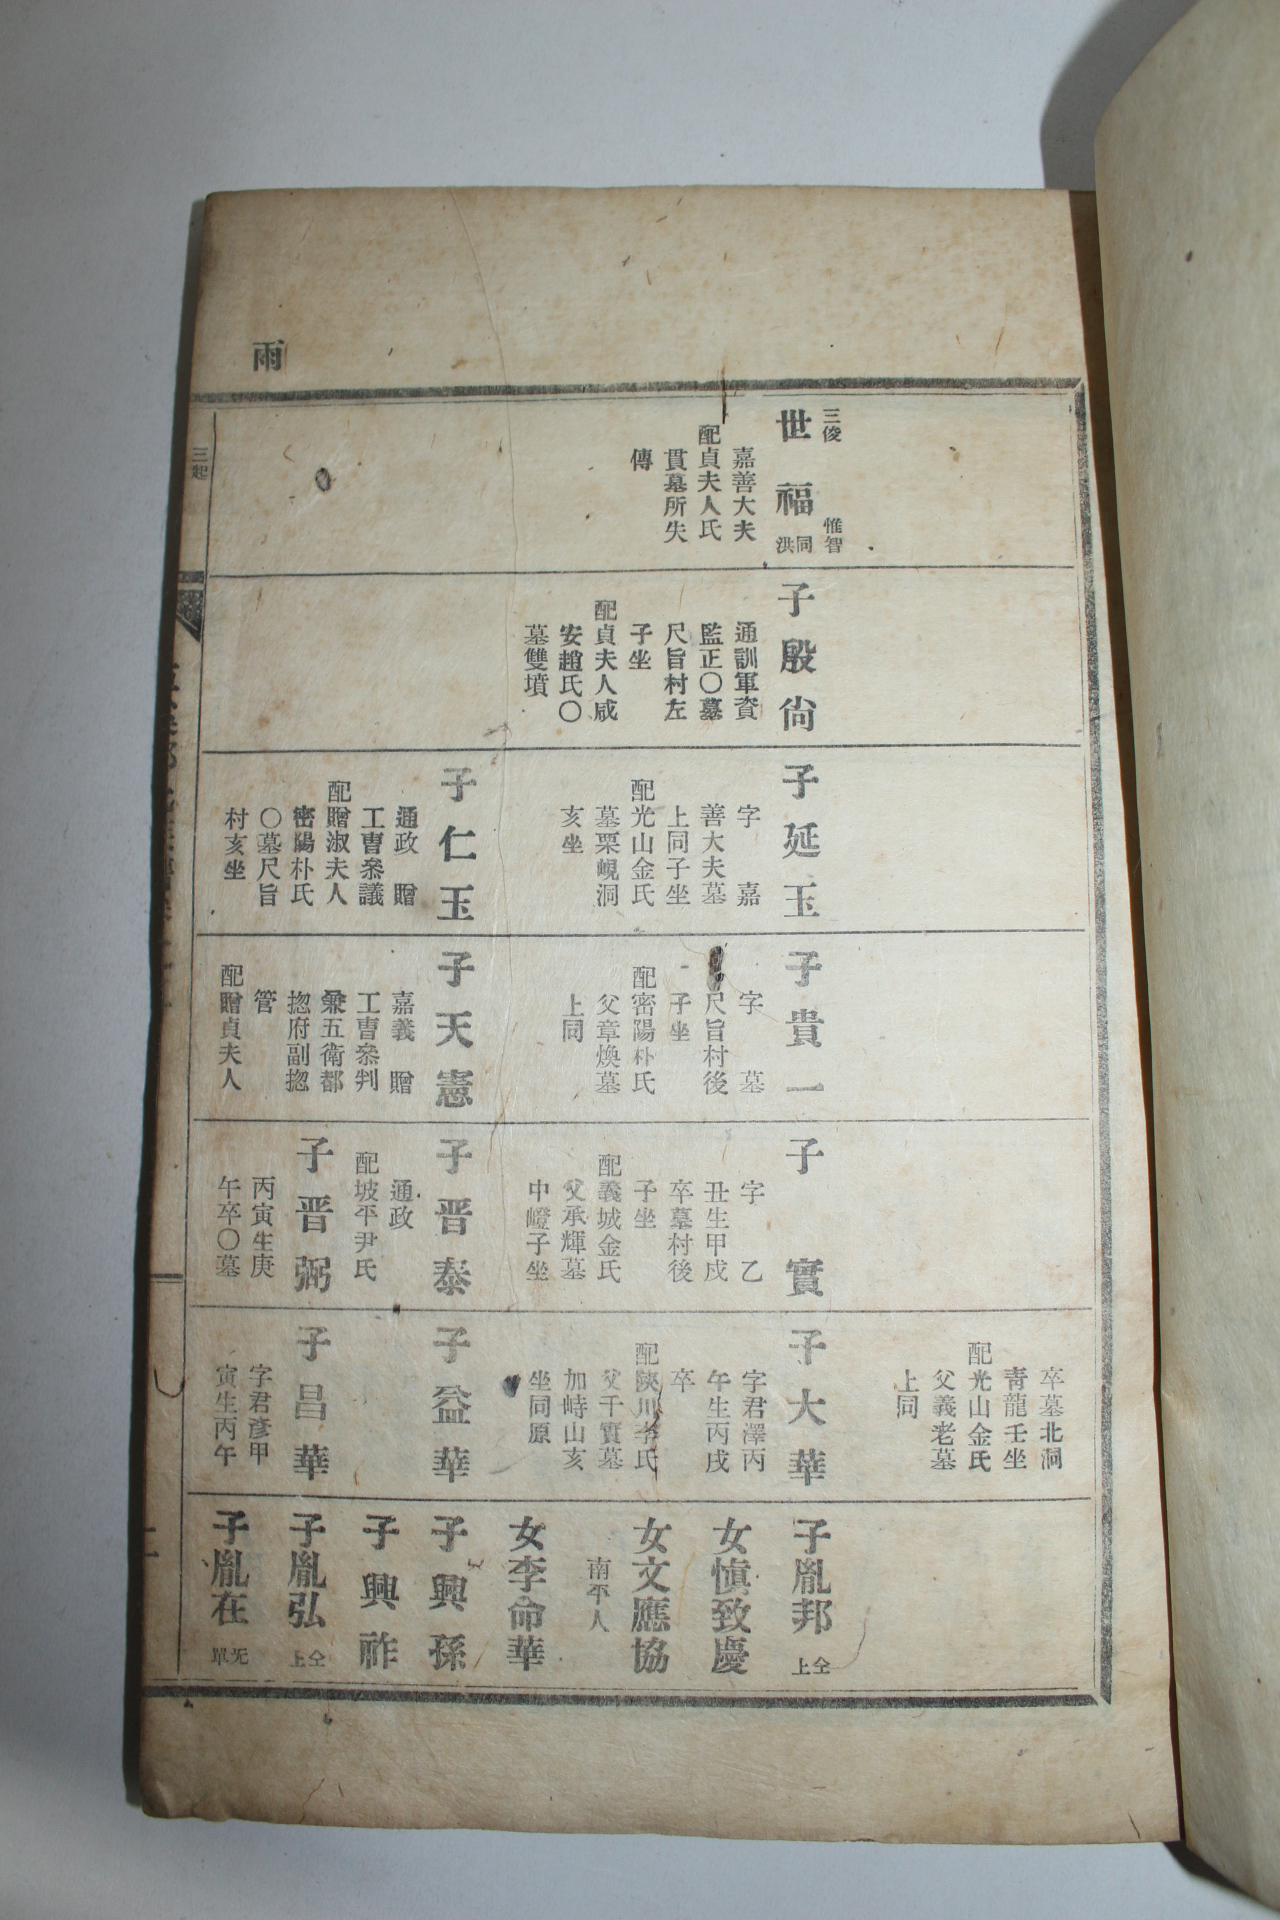 雨
三俊
惟智
世福
同
洪
嘉善大夫
配貞夫人氏
貫墓所失
傳
子殷尙
通訓軍資
監正〇墓
尺旨村左
子坐
配貞夫人咸
安趙氏〇
墓雙墳
子延玉
字 嘉
善大夫墓
上同子坐
配光山金氏
墓栗峴洞
亥坐
子仁玉
通政 贈
工曹叅議
配贈淑夫人
密陽朴氏
〇墓尺旨
村亥坐
子貴一
字 墓
尺旨村後
子坐
配密陽朴氏
父章煥墓
上同
子天憲
嘉義 贈
工曹叅判
兼五衛都
摠府副摠
管
配贈貞夫人
子實
字 乙
丑生甲戌
卒墓村後
子坐
配義城金氏
父承輝墓
中嶝子坐
子晋泰
通政
配坡平尹氏
子晋弼
丙寅生庚
午卒〇墓
卒墓北洞
靑龍壬坐
配光山金氏
父義老墓
上同
子大華
字君澤丙
午生丙戌
卒
配陜川李氏
父干實墓
加峙山亥
坐同原
子益華
子昌華
字君彥甲
寅生丙午
子胤邦
仝上
女愼致慶
女文應協
南平人
女李命華
子興孫
子興祚
子胤弘
仝上
子胤在
无單
三起